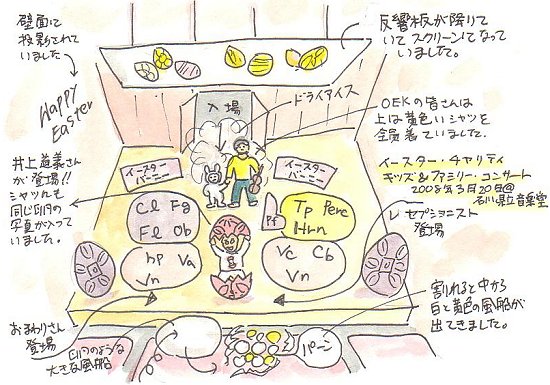 壁面に
投影されて
いました
Happy
Easter
反響板が降りて
いてスクリーンになって
いました。
入場
ドライアイス
OEKの皆さんは
上は黄色いシャツを
全員着ていました。
イースター・チャリティ
キッズ&ファミリー・コンサート
2008年3月20日@
石川県立音楽堂
井上道義さん
が登場!!
シャツにも
同じ卵の
写真が入って
いました。
イースター
バニー
イースター
バニー
Cl Fg
Fl Ob
Pf
Tp Perc
Hrn
レセプショニスト
登場
hp Va
Vn
Vc Cb
Vn
おまわりさん
登場
卵のような
大きな風船
パーン
割れると中から
白と黄色の風船が
出てきました。